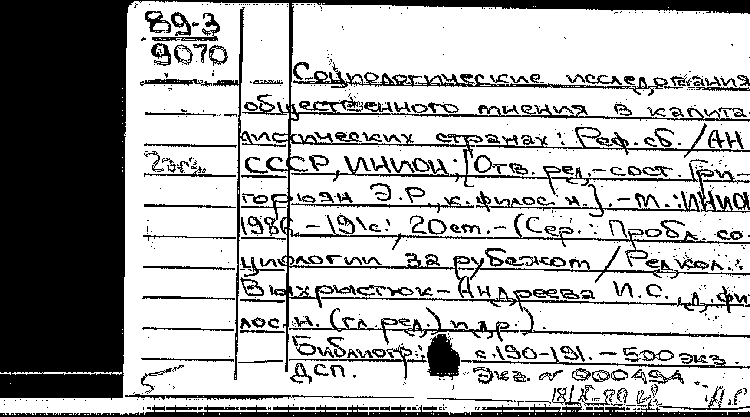 89-3
9070
Социологические исследования
общественного мнения в капита
листических странах: Реф. сб. / АН
2 экз. СССР, ИНИОН; [Отв. ред.-сост. Гри-
горьян Э.Р., к.филос.н.]. - М.: ИНИОН
1986 - 191 с.; 20 см. - (Сер.: Пробл. со-
циологии за рубежом / Редкол.:
Выхрыстюк-Андреева И.С., д. фи
лос. н. (гл. ред.) и др.).
Библиогр.: с. 190-191. - 500 экз.
ДСП. Экз. № 000494
5